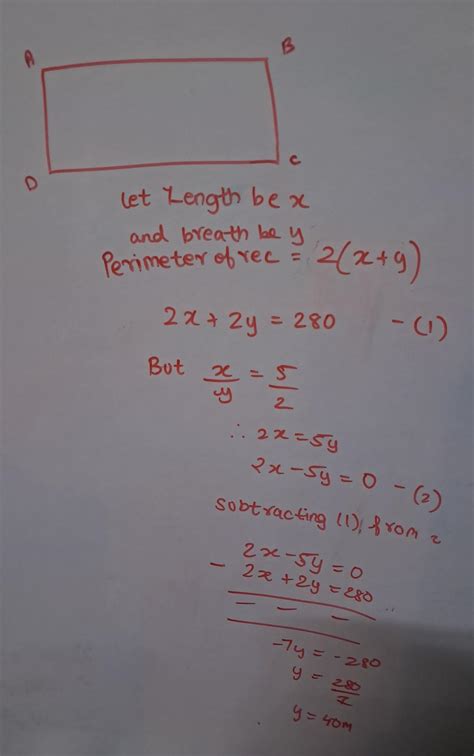 A
B
D
C
Let Length be x
and breath be y
Perimeter of rec = 2(x+y)
2x + 2y = 280 - (1)
But x/y = 5/2
∴ 2x = 5y
2x - 5y = 0 - (2)
subtracting (1), from 2
2x - 5y = 0
- 2x + 2y = 280
- - -
-7y = -280
y = 280/7
y = 40m